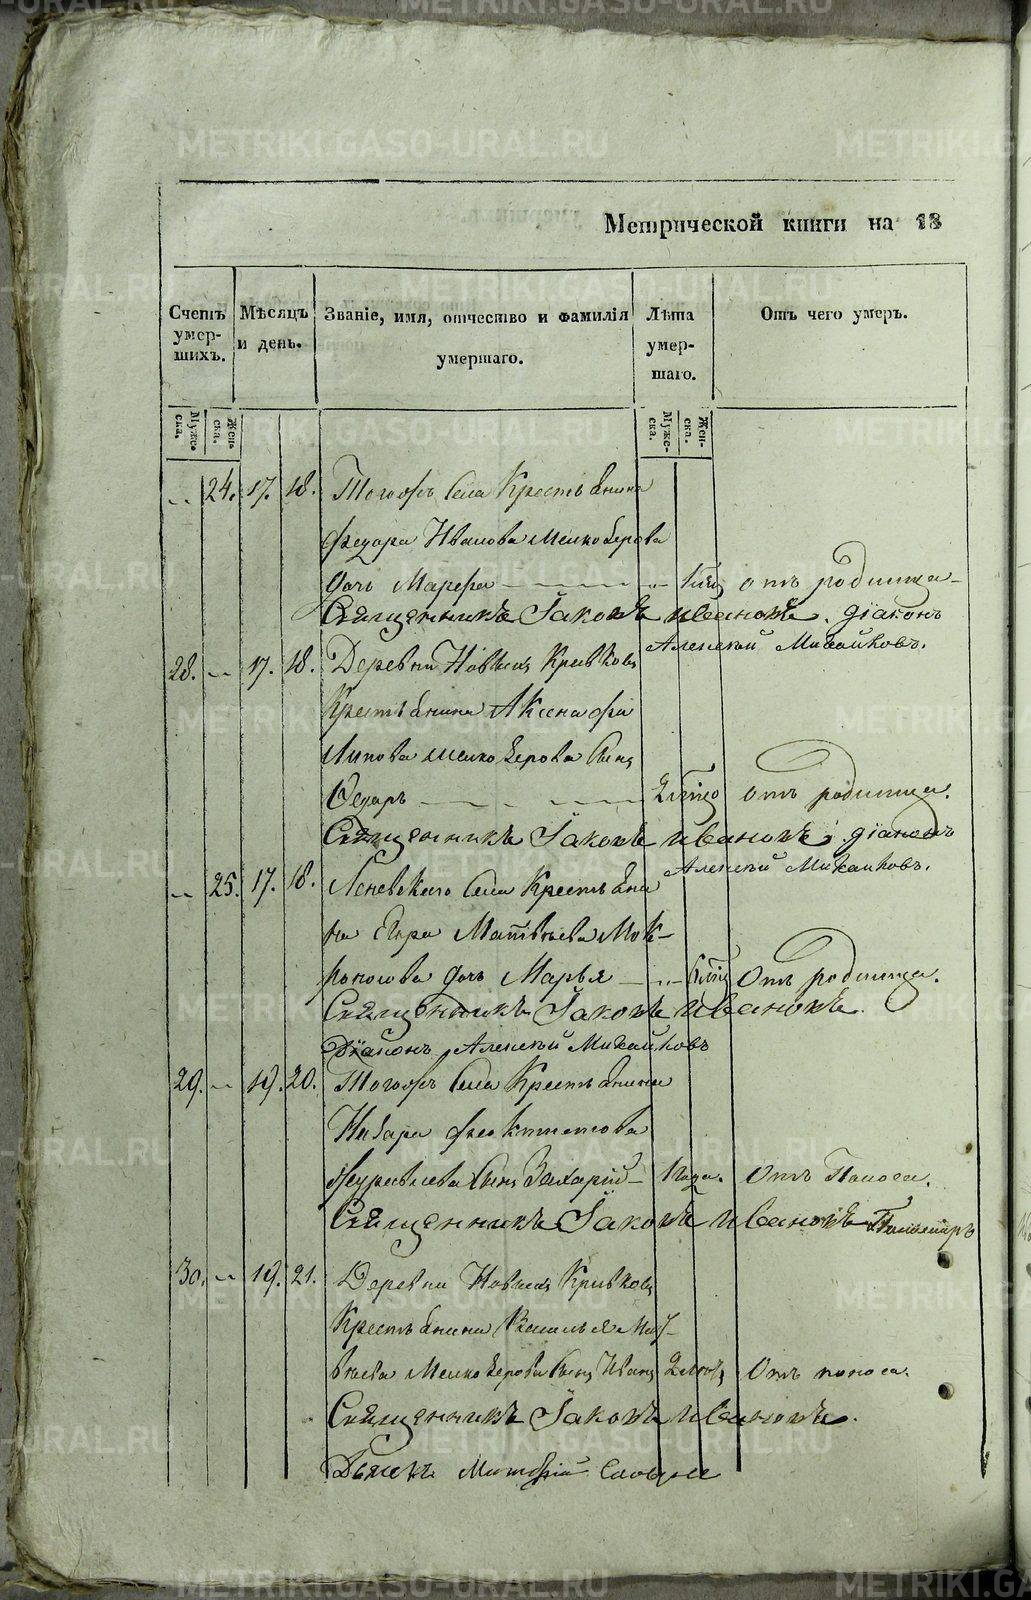 Метрической книги на 18
Счетъ умер-шихъ.
Мѣсяцъ и день.
Званіе, имя, отчество и фамилія умершаго.
Лѣта умер-шаго.
Отъ чего умеръ.
Муже-ска.
Жен-ска.
Муже-ска.
Жен-ска.
24. 17. 18. Тогожъ Села Крестьянина
Федора Иванова Мелкозерова
дочь Марфа отъ родимца
Священникъ Іаковъ Ивановъ. Діаконъ
Алексѣй Михайловъ.
28. 17. 18. Деревни Новыхъ Кривковъ
Крестьянина Аксена Фи
липова Мелкозерова Сынъ
Федоръ отъ родимца.
Священникъ Іаковъ Ивановъ. Діаконъ
Алексѣй Михайловъ.
25. 17. 18. Леневскаго Села Крестьяни
на Егора Матвѣева Мок-
роносова дочь Марья Отъ родимца.
Священникъ Іаковъ Ивановъ.
Діаконъ Алексѣй Михайловъ
29. 19. 20. Тогожъ Села Крестьянина
Назара Феоктистова
Журавлева Сынъ Захарій 1 года. Отъ Поноса.
Священникъ Іаковъ Ивановъ Пономарь
30. 19. 21. Деревни Новыхъ Кривковъ
Крестьянина Василья Мат-
вѣева Мелкозерова Сынъ Иванъ Отъ поноса.
Священникъ Іаковъ Ивановъ.
Дьячекъ
METRIKI.GASO-URAL.RU